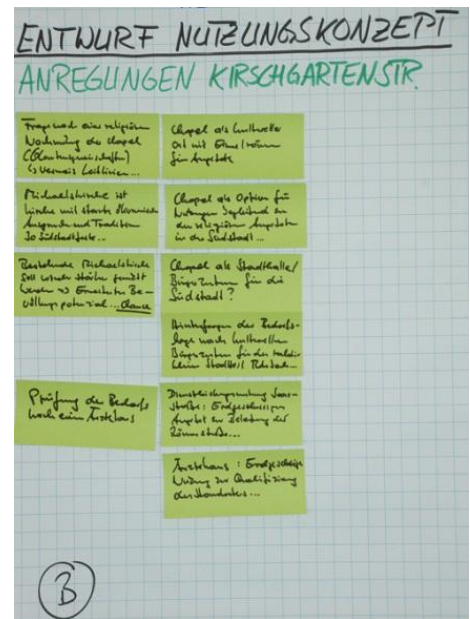 ENTWURF NUTZUNGSKONZEPT
ANREGUNGEN KIRSCHGARTENSTR.
Frage nach einer religiösen
Nachnutzung der Chapel
(Glaubensgemeinschaften)
↳ Verweis Leitlinien...
Michaelskirche ist
Kirche mit starker ökumenischer
und Tradition
Bestehende Michaelskirche
soll wieder stärker genutzt
werden => Erweiterter Be-
völkerungspotenzial... Chance
Prüfung des Bedarfs
nach einem Ärztehaus
Chapel als kultureller
Ort mit
für Angebote
Chapel als Option für
Nutzungen begleitend zu
den religiösen Angeboten
in der Südstadt...
Chapel als Stadthalle/
Bürgerzentrum für die
Südstadt?
Hinterfragen der Bedarfs-
lage nach kulturellen
Bürgerzentrum für den
Stadtteil
Dienstleistungsnutzung Saar-
straße: Erdgeschossiges
Angebot zur Belebung der
Römerstraße...
Ärztehaus: Erdgeschossige
Nutzung zur Qualifizierung
des Standortes...
B